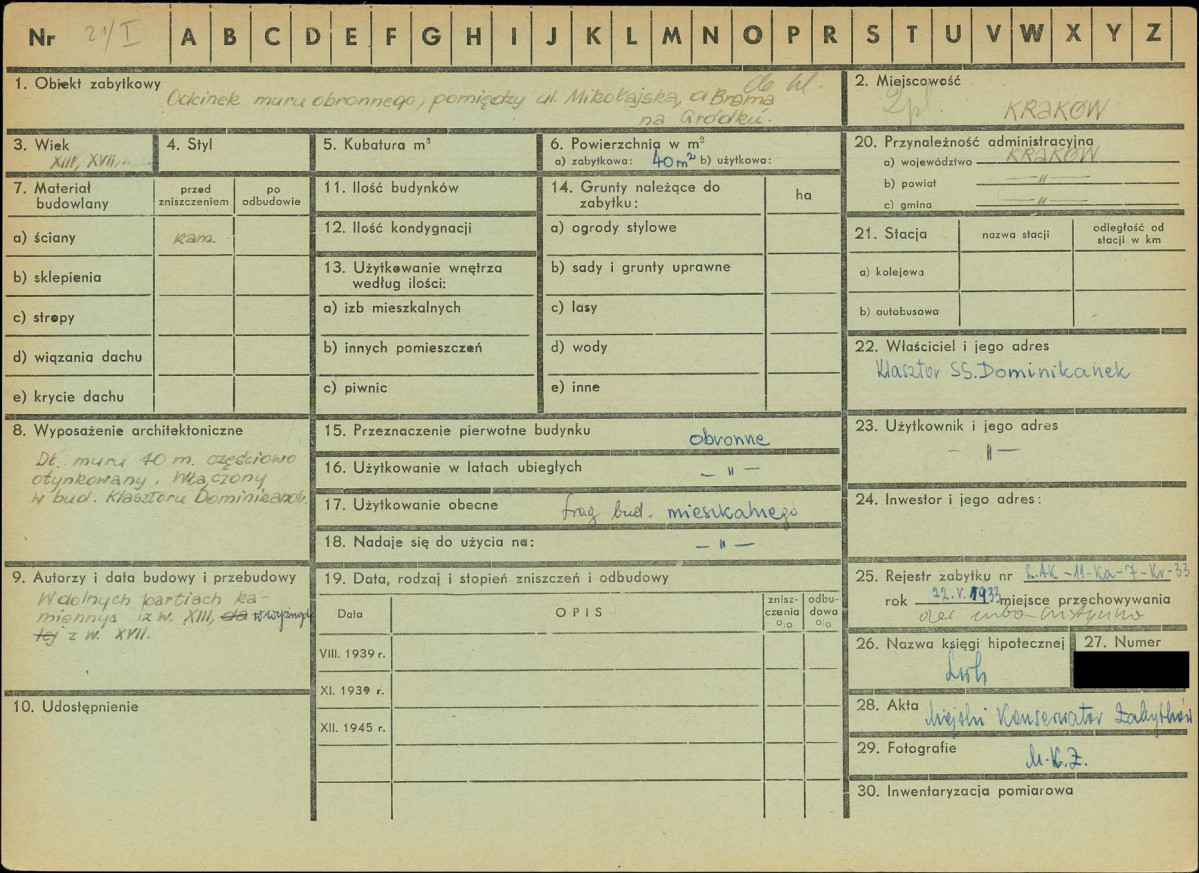 Nr 21/I A B C D E F G H I J K L M N O P R S T U V W X Y Z
1. Obiekt zabytkowy
Odcinek muru obronnego, pomiędzy ul. Mikołajską, a Bramą
na Gródku.
2. Miejscowość
KRAKÓW
3. Wiek
XIII, XVII,
4. Styl
5. Kubatura m³
6. Powierzchnia w m²
a) zabytkowa: 40 m² b) użytkowa:
7. Materiał
budowlany
przed
zniszczeniem
po
odbudowie
a) ściany kam.
b) sklepienia
c) stropy
d) wiązania dachu
e) krycie dachu
8. Wyposażenie architektoniczne
Dł. muru 40 m. częściowo
otynkowany. Włączony
w bud. Klasztoru Dominikanek.
9. Autorzy i data budowy i przebudowy
W dolnych partiach ka-
miennys z w. XIII, w wyższej
tej z w. XVII.
10. Udostępnienie
11. Ilość budynków
12. Ilość kondygnacji
13. Użytkowanie wnętrza
według ilości:
a) izb mieszkalnych
b) innych pomieszczeń
c) piwnic
14. Grunty należące do
zabytku:
ha
a) ogrody stylowe
b) sady i grunty uprawne
c) lasy
d) wody
e) inne
15. Przeznaczenie pierwotne budynku obronne
16. Użytkowanie w latach ubiegłych — " —
17. Użytkowanie obecne frag bud. mieszkalnego
18. Nadaje się do użycia na: — " —
19. Data, rodzaj i stopień zniszczeń i odbudowy
Data
OPIS
znisz-
czenia
%
odbu-
dowa
%
VIII. 1939 r.
XI. 1939 r.
XII. 1945 r.
20. Przynależność administracyjna
a) województwo KRAKÓW
b) powiat — " —
c) gmina — " —
21. Stacja
nazwa stacji
odległość od
stacji w km
a) kolejowa
b) autobusowa
22. Właściciel i jego adres
Klasztor SS. Dominikanek
23. Użytkownik i jego adres
— " —
24. Inwestor i jego adres:
25. Rejestr zabytku nr L.AK-11-Ka-7-Kr-33
rok 22.V.1933 miejsce przechowywania
26. Nazwa księgi hipotecznej
Lwh
27. Numer
28. Akta Miejski Konserwator Zabytków
29. Fotografie
M.K.Z.
30. Inwentaryzacja pomiarowa